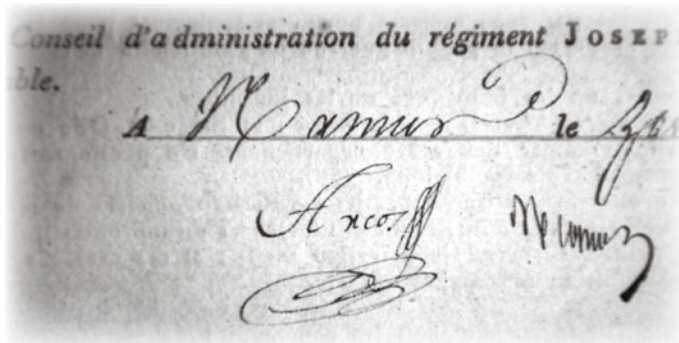 Conseil d'administration du régiment JOSEP
ble.
A Namur le
Arcos